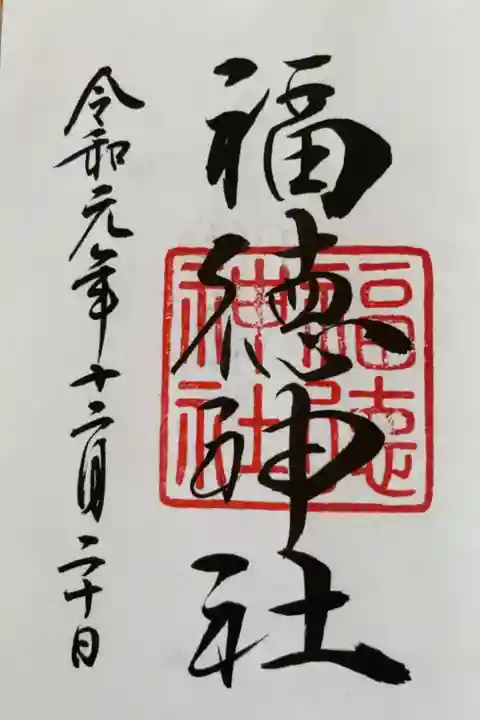 福徳神社
福徳
神社
令和元年十二月二十日